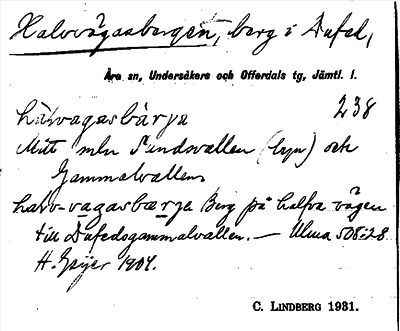 Halvvägasbergen, berg i Dufed,
Åre sn, Undersåkers och Offerdals tg, Jämtl. l.
hàlvagasbärjə 238
Mitt mln Sundsvallen (byn) och
Gammalvallen
halv-vagasbærja Berg på halfva vägen
till Dufedsgammalvallen. — Ulma 508:28
H. Geijer 1907.
C. LINDBERG 1931.